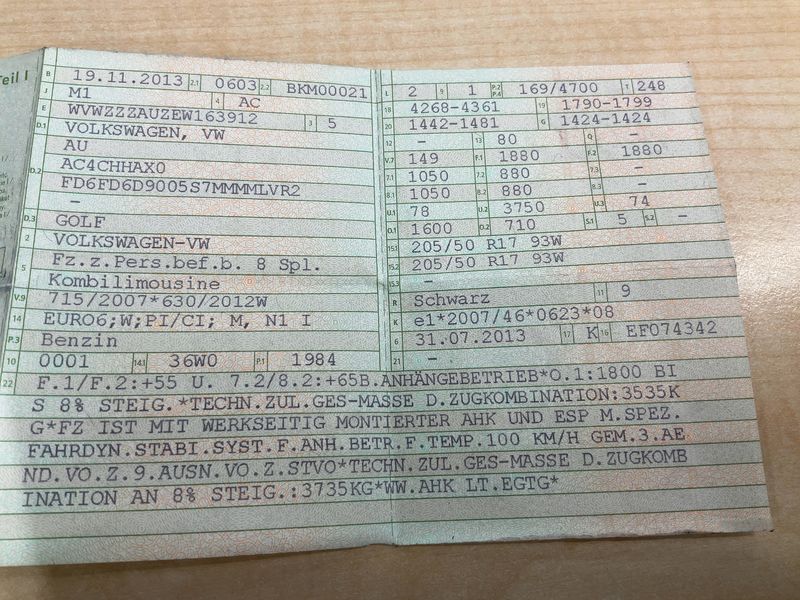 Teil I
B 19.11.2013 2.1 0603 2.2 BKM00021
J M1 4 AC
E WVWZZZAUZEW163912 3 5
D.1 VOLKSWAGEN, VW
AU
D.2 AC4CHHAX0
FD6FD6D9005S7MMMMLVR2
-
D.3 GOLF
2 VOLKSWAGEN-VW
5 Fz.z.Pers.bef.b. 8 Spl.
Kombilimousine
V.9 715/2007*630/2012W
14 EURO6;W;PI/CI; M, N1 I
P.3 Benzin
10 0001 14.1 36W0 P.1 1984
L 2 9 1 P.2 P.4 169/4700 T 248
18 4268-4361 19 1790-1799
20 1442-1481 G 1424-1424
12 - 13 80 Q -
V.7 149 F.1 1880 F.2 1880
7.1 1050 7.2 880 7.3 -
8.1 1050 8.2 880 8.3 -
U.1 78 U.2 3750 U.3 74
O.1 1600 O.2 710 S.1 5 S.2 -
15.1 205/50 R17 93W
15.2 205/50 R17 93W
15.3 -
R Schwarz 11 9
K e1*2007/46*0623*08
6 31.07.2013 17 K 16 EF074342
21 -
22 F.1/F.2:+55 U. 7.2/8.2:+65B.ANHÄNGEBETRIEB*O.1:1800 BI
S 8% STEIG.*TECHN.ZUL.GES-MASSE D.ZUGKOMBINATION:3535K
G*FZ IST MIT WERKSEITIG MONTIERTER AHK UND ESP M.SPEZ.
FAHRDYN.STABI.SYST.F.ANH.BETR.F.TEMP.100 KM/H GEM.3.AE
ND.VO.Z.9.AUSN.VO.Z.STVO*TECHN.ZUL.GES-MASSE D.ZUGKOMB
INATION AN 8% STEIG.:3735KG*WW.AHK LT.EGTG*